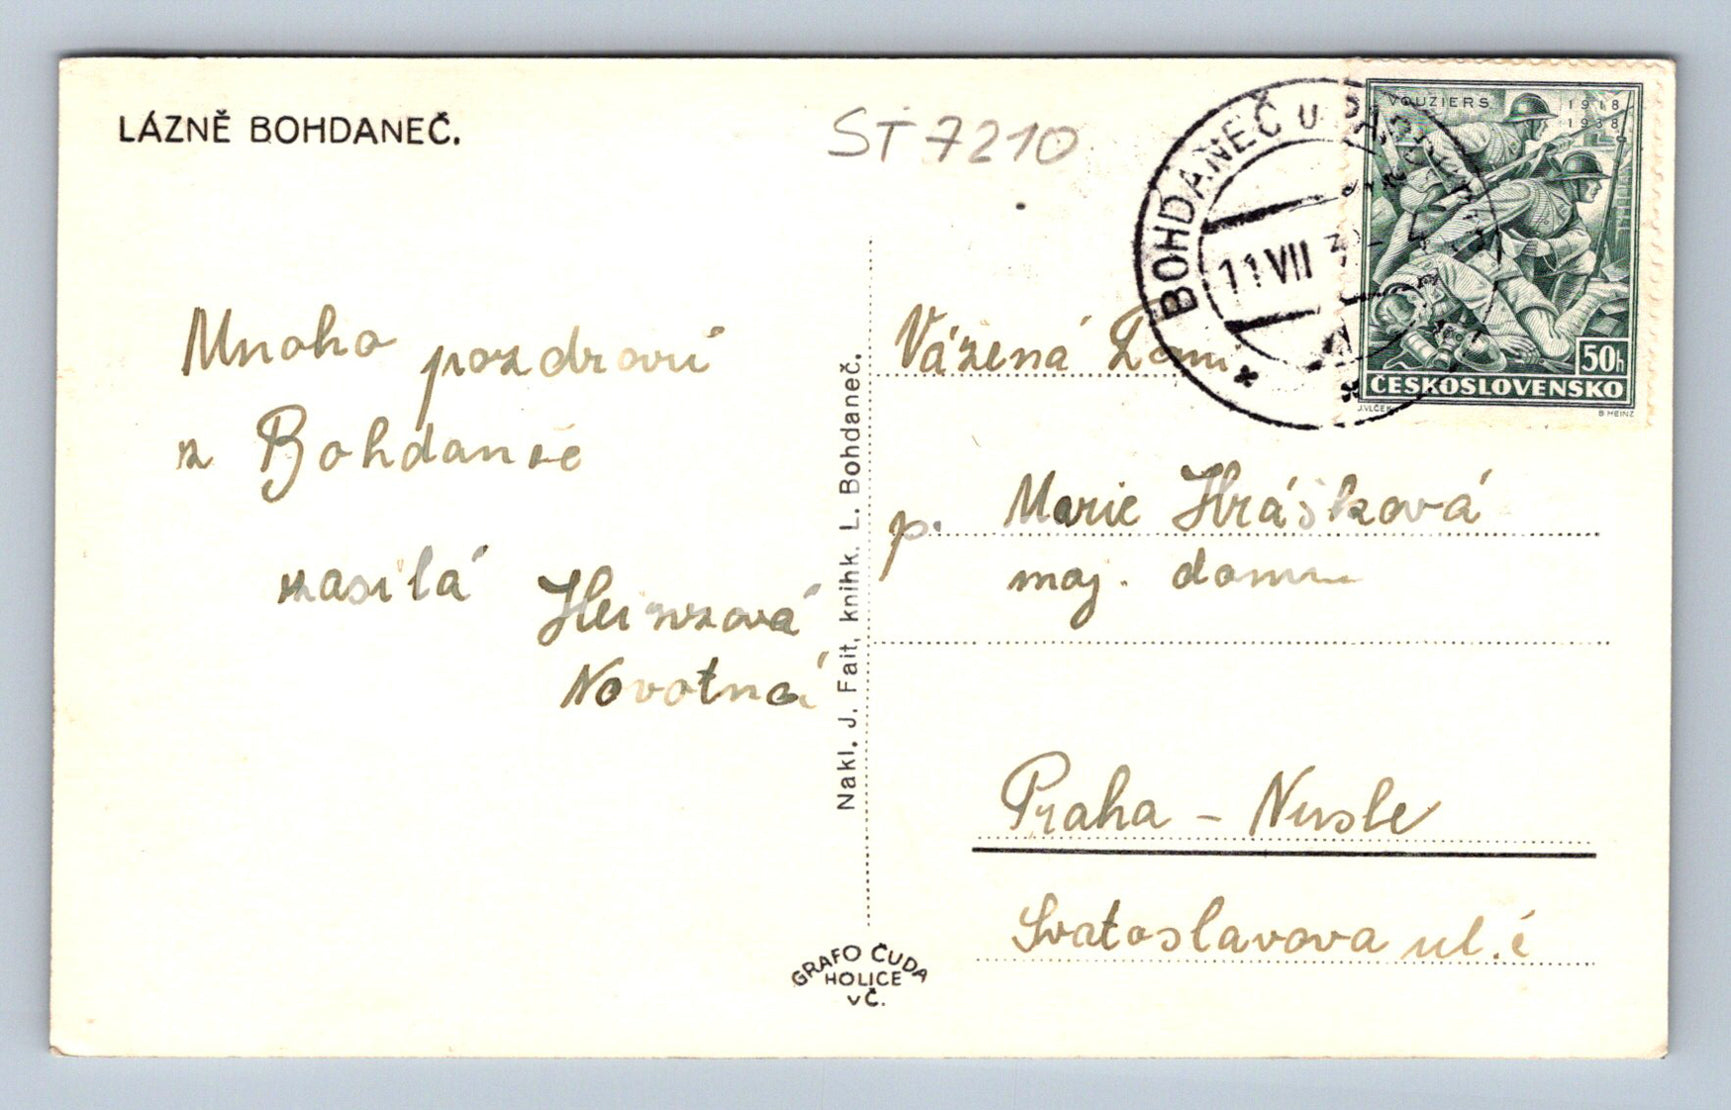 LÁZNĚ BOHDANEČ.
ST 7210
BOHDANEČ U PARDUBIC
11 VII 3
VOUZIERS 1918
1938
50h
ČESKOSLOVENSKO
J.VLČEK B.HEINZ
Mnoho pozdravů
z Bohdanče
zasílá
Novotná
Nakl. J. Fait, knihk. L. Bohdaneč.
Vážená
p. Marie Hrášková
maj. domu
Praha - Nusle
Svatoslavova ul. č
GRAFO ČUDA
HOLICE
v Č.